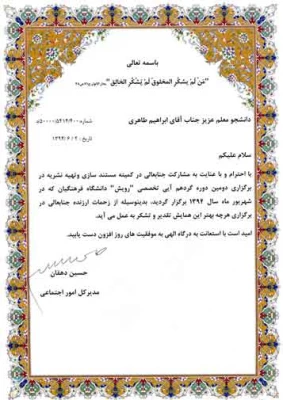 باسمه تعالی
"مَن لَم یشکُر المخلوق لَم یَشکُر الخالِق"
دانشجو معلم عزیز جناب آقای ابراهیم طاهری
شماره: ۵۰۰۰۰/۵۴۱۴/۴۰۰
تاریخ: ۱۳۹۴/۶/۴
سلام علیکم
با احترام و با عنایت به مشارکت جنابعالی در کمیته مستند سازی وتهیه نشریه در
برگزاری دومین دوره گردهم آیی تخصصی "رویش" دانشگاه فرهنگیان که در
شهریور ماه سال ۱۳۹۴ برگزار گردید، بدینوسیله از زحمات ارزنده جنابعالی در
برگزاری هرچه بهتر این همایش تقدیر و تشکر به عمل می آید.
امید است با استعانت به درگاه الهی به موفقیت های روز افزون دست یابید.
حسین دهقان
مدیرکل امور اجتماعی